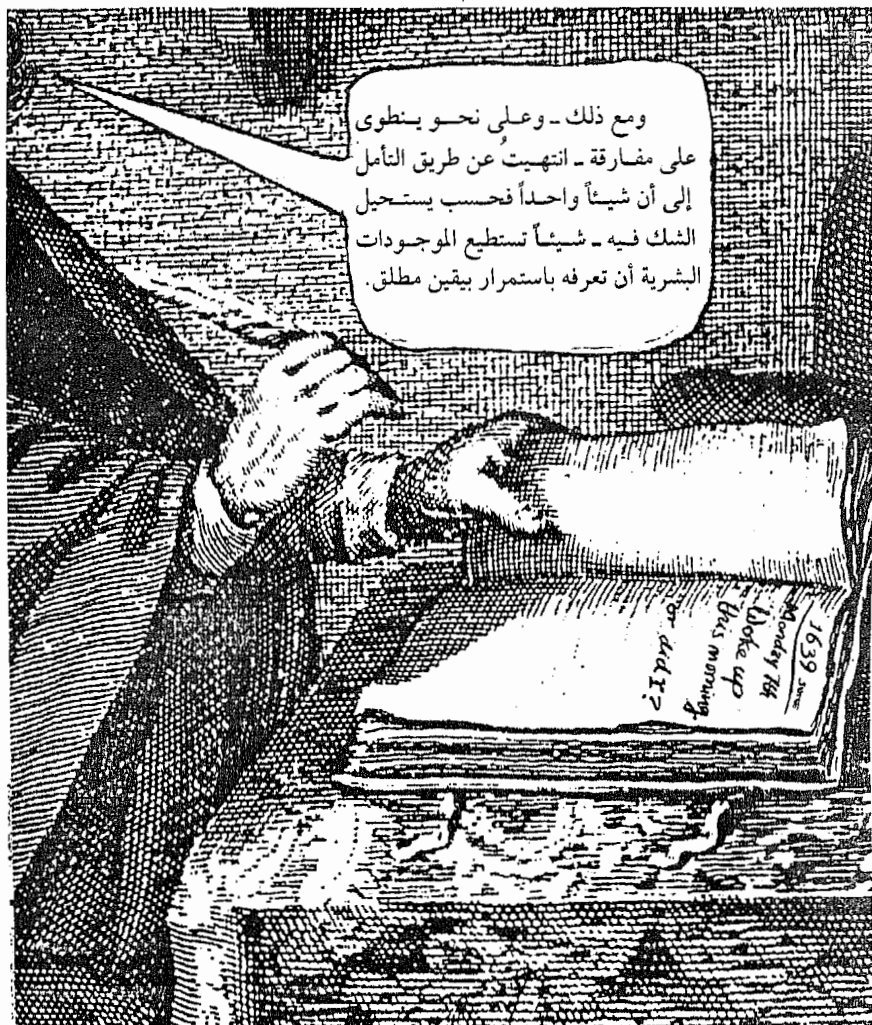 ومع ذلك ـ وعلى نحو ينطوى
على مفارقة ـ انتهيتُ عن طريق التأمل
إلى أن شيئاً واحداً فحسب يستحيل
الشك فيه ـ شيئاً تستطيع الموجودات
البشرية أن تعرفه باستمرار بيقين مطلق.
1639 June
Monday 7th
- Woke up
this morning
or did I?